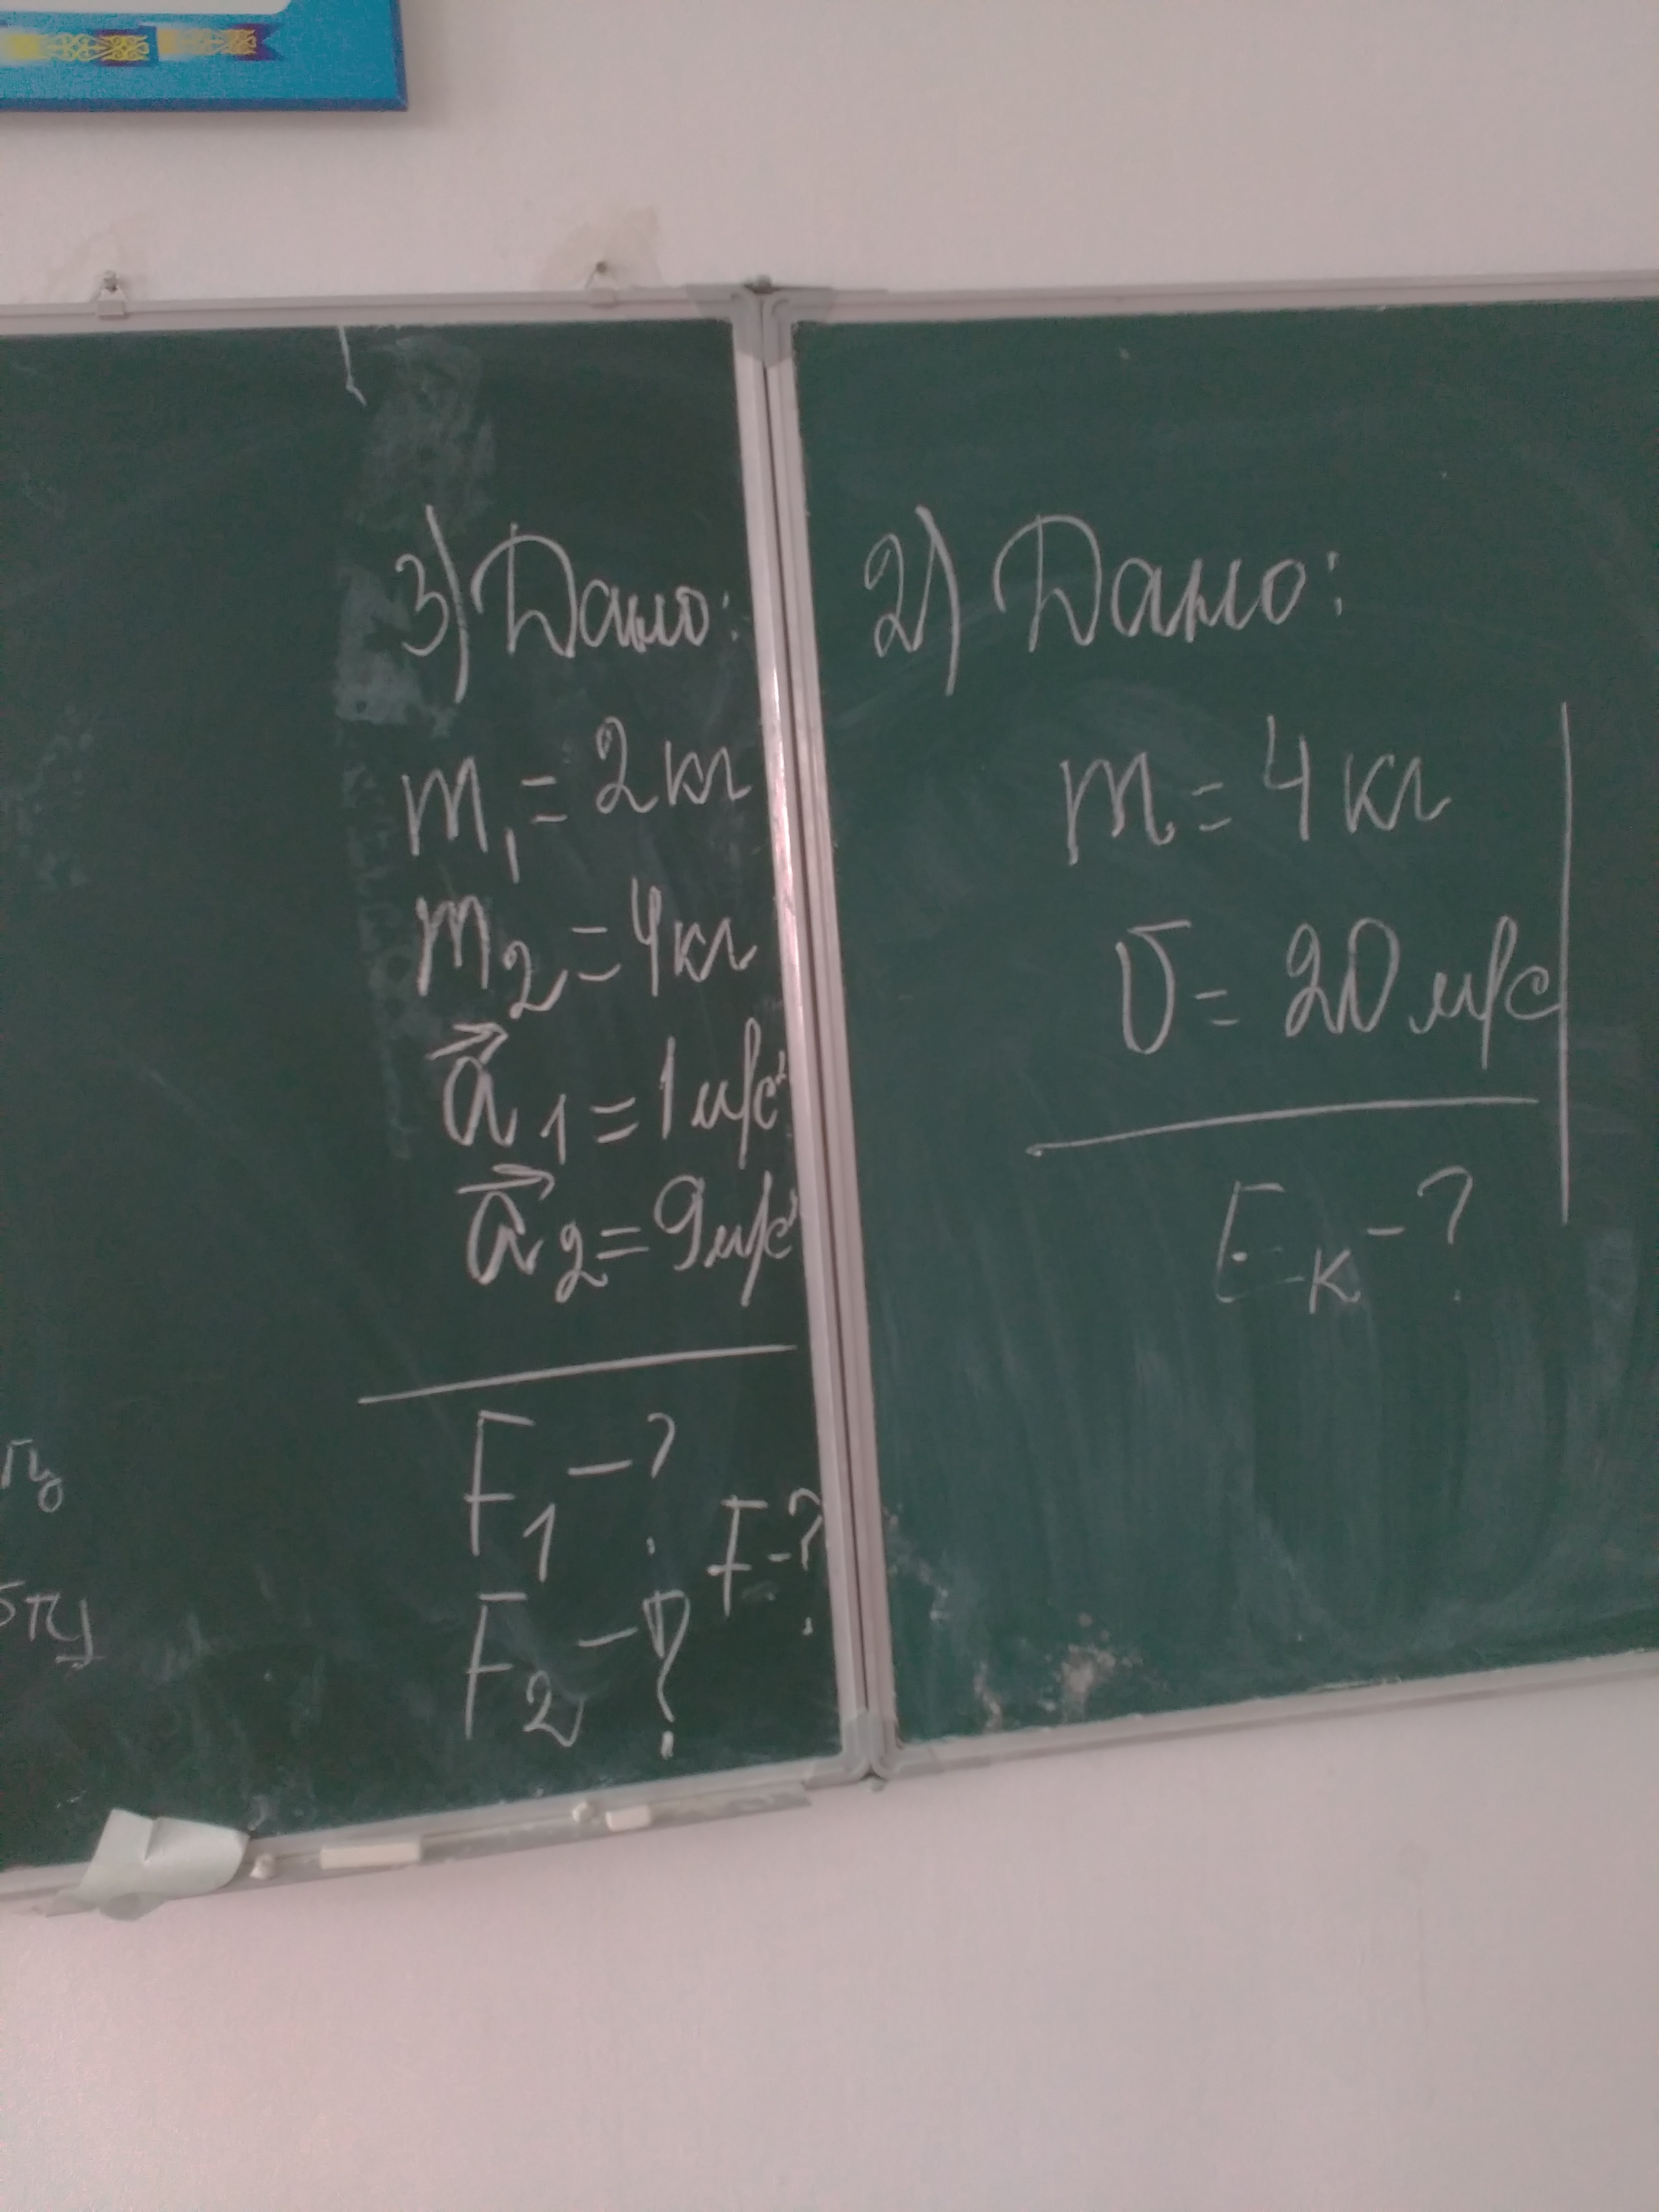 3) Дано:
m₁ = 2 кг
m₂ = 4 кг
a⃗₁ = 1 м/с²
a⃗₂ = 9 м/с²
F₁ - ?
F - ?
F₂ - ?
2) Дано:
m = 4 кг
υ = 20 м/с
Eк - ?